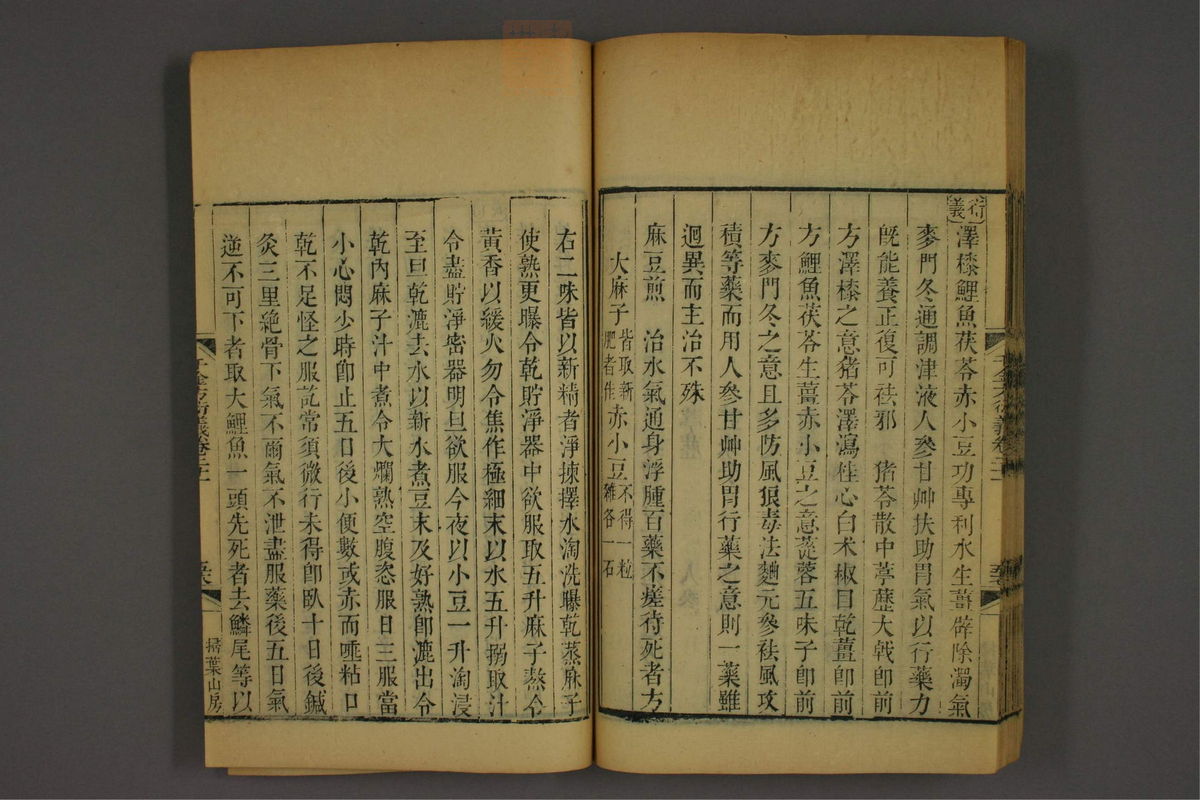 〔衍義〕澤漆鯉魚茯苓赤小豆功專利水生薑辟除濁氣
麥門冬通調津液人參甘艸扶助胃氣以行藥力
旣能養正復可祛邪　猪苓散中葶藶大戟卽前
方澤漆之意猪苓澤瀉桂心白术椒目乾薑卽前
方鯉魚茯苓生薑赤小豆之意蓯蓉五味子卽前
方麥門冬之意且多防風狼毒法麯元參祛風攻
積等藥而用人參甘艸助胃行藥之意則一藥雖
迥異而主治不殊
麻豆煎　治水氣通身浮腫百藥不瘥待死者方
大麻子皆取新肥者佳赤小豆不得一粒雜各一石
右二味皆以新精者淨揀擇水淘洗曝乾蒸麻子
使熟更曝令乾貯淨器中欲服取五升麻子熬令
黃香以緩火勿令焦作極細末以水五升搦取汁
令盡貯淨密器明旦欲服今夜以小豆一升淘浸
至旦乾漉去水以新水煮豆未及好熟卽漉出令
乾內麻子汁中煮令大爛熟空腹恣服日三服當
小心悶少時卽止五日後小便數或赤而唾粘口
乾不足怪之服訖常須微行未得卽臥十日後鍼
灸三里絕骨下氣不爾氣不泄盡服藥後五日氣
逆不可下者取大鯉魚一頭先死者去鱗尾等以
千金方衍義卷二十一
掃葉山房